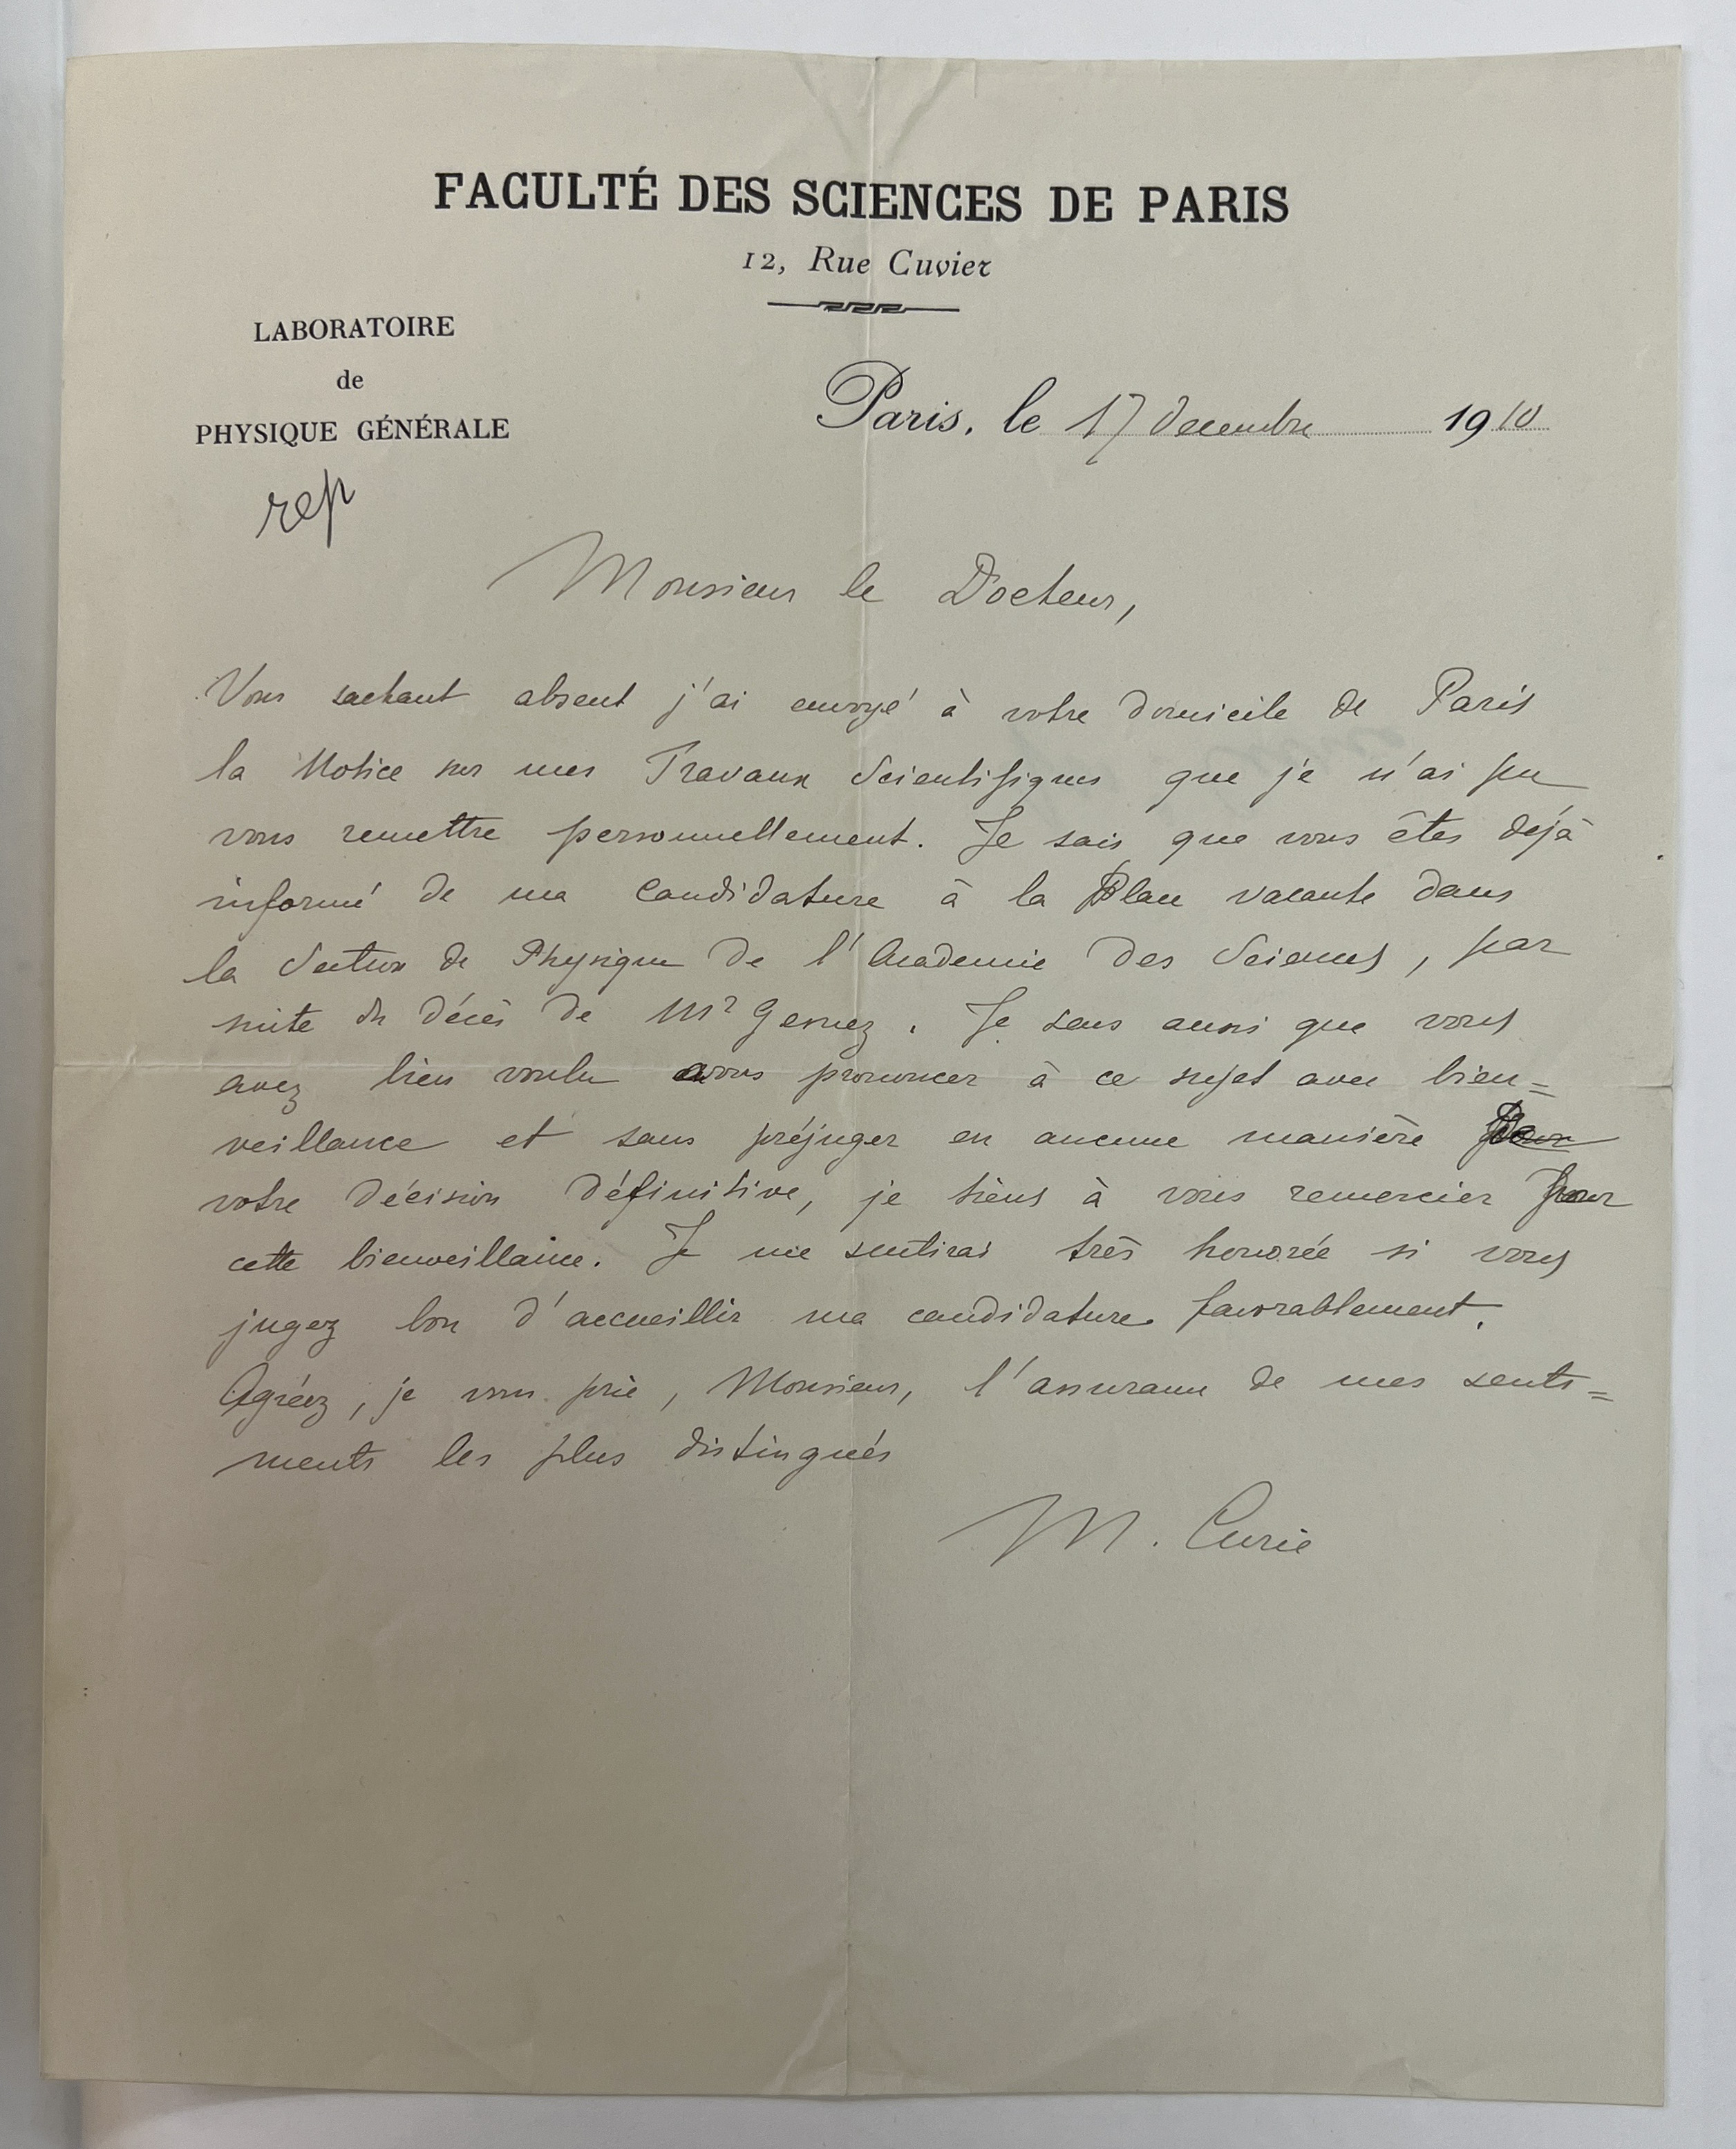 FACULTÉ DES SCIENCES DE PARIS
12, Rue Cuvier
LABORATOIRE
de
PHYSIQUE GÉNÉRALE
Paris, le 17 decembre 1910
rep
Monsieur le Docteur,
Vous sachant absent j'ai envoyé à votre domicile de Paris
la Notice sur mes Travaux Scientifiques que je n'ai pu
vous remettre personnellement. Je sais que vous êtes déjà
informé de ma candidature à la Place vacante dans
la Section de Physique de l'Academie des Sciences, par
suite du décès de Mr Gernez. Je sais aussi que vous
avez bien voulu vous prononcer à ce sujet avec bien=
veillance et sans préjuger en aucune manière
votre décision définitive, je tiens à vous remercier pour
cette bienveillance. Je me sentirai très honorée si vous
jugez bon d'accueillir ma candidature favorablement.
Agréez, je vous prie, Monsieur, l'assurance de mes senti=
ments les plus distingués
M. Curie